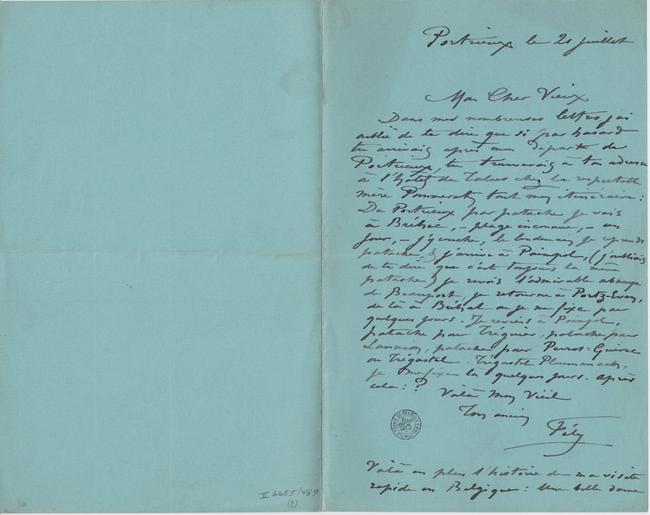 Portrieux le 21 juillet
Mon Cher Vieux
Dans mes nombreuses lettres j'ai
oublié de te dire que si par hasard
tu arrivais après mon départ de
Portrieux, tu trouverais à ton adresse
à l'hôtel du Talus chez la respectable
mère tout mon itinéraire :
De Portrieux par patache je vais
à Bréhec, – plage inconnue, – un
jour, – j'y couche, le lendemain je reprends
patache, & j'arrive à Paimpol, (j'oubliais
de te dire que c'est toujours la même
patache) je revois l'admirable abbaye
de Beauport, je retourne à Portz-Even,
de là à Bréhat où je me fixe par
quelques jours. Je reviens à Paimpol,
patache pour Tréguier, patache pour
Lannion, patache pour Perros-Guirec
ou Trégastel. Trégastel Ploumanach,
je me fixe là quelques jours. après
cela : ?
Voilà Mon Vieil
Ton ancien
Fély
Voilà en plus l'histoire de ma visite
rapide en Belgique : Une belle dame
II 6655/469
(2)